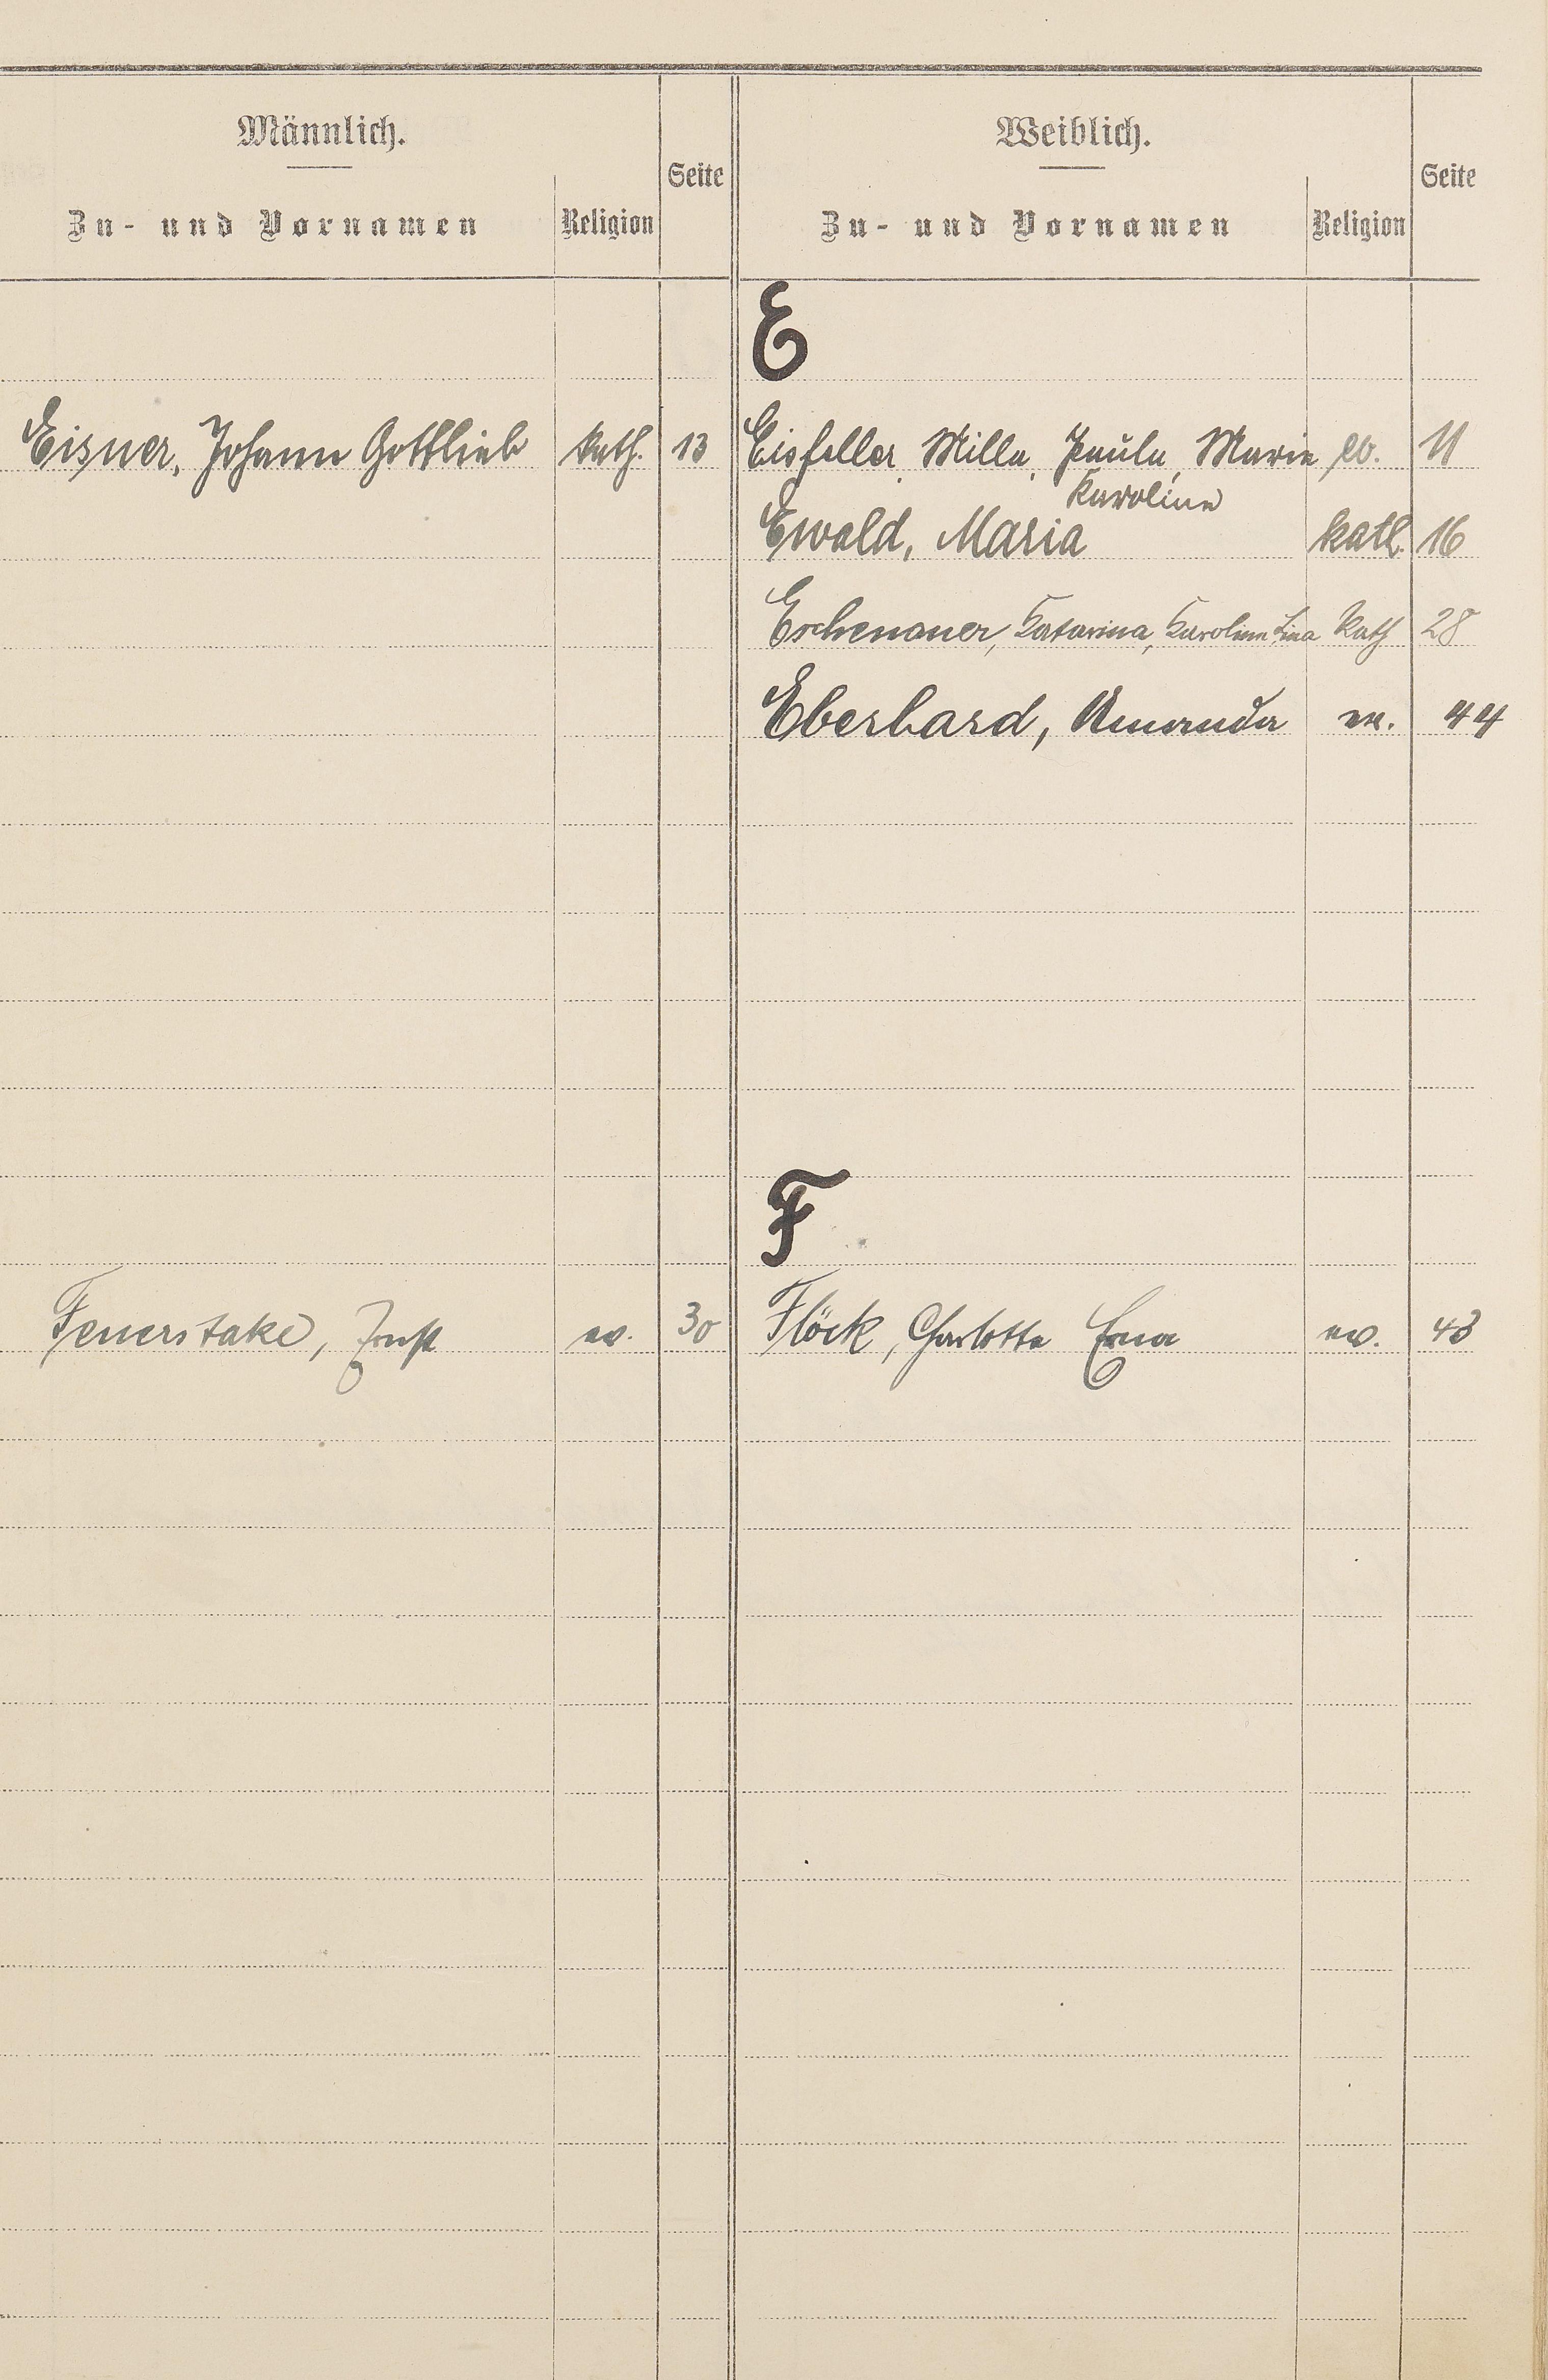 Männlich.
Zu- und Vornamen Religion Seite
Weiblich.
Zu- und Vornamen Religion Seite
E
Eisner, Johann Gottlieb kath. 13
Eisfeller, Milla, Paula, Marie ev. 11
Karoline
Ewald, Maria kath. 16
Eschenauer, Katarina, Karoline Lina Kath 28
Eberhard, Amanda ev. 44
F
Feuerstake, Ernst ev. 30
Flöck, Charlotte Erna ev. 43